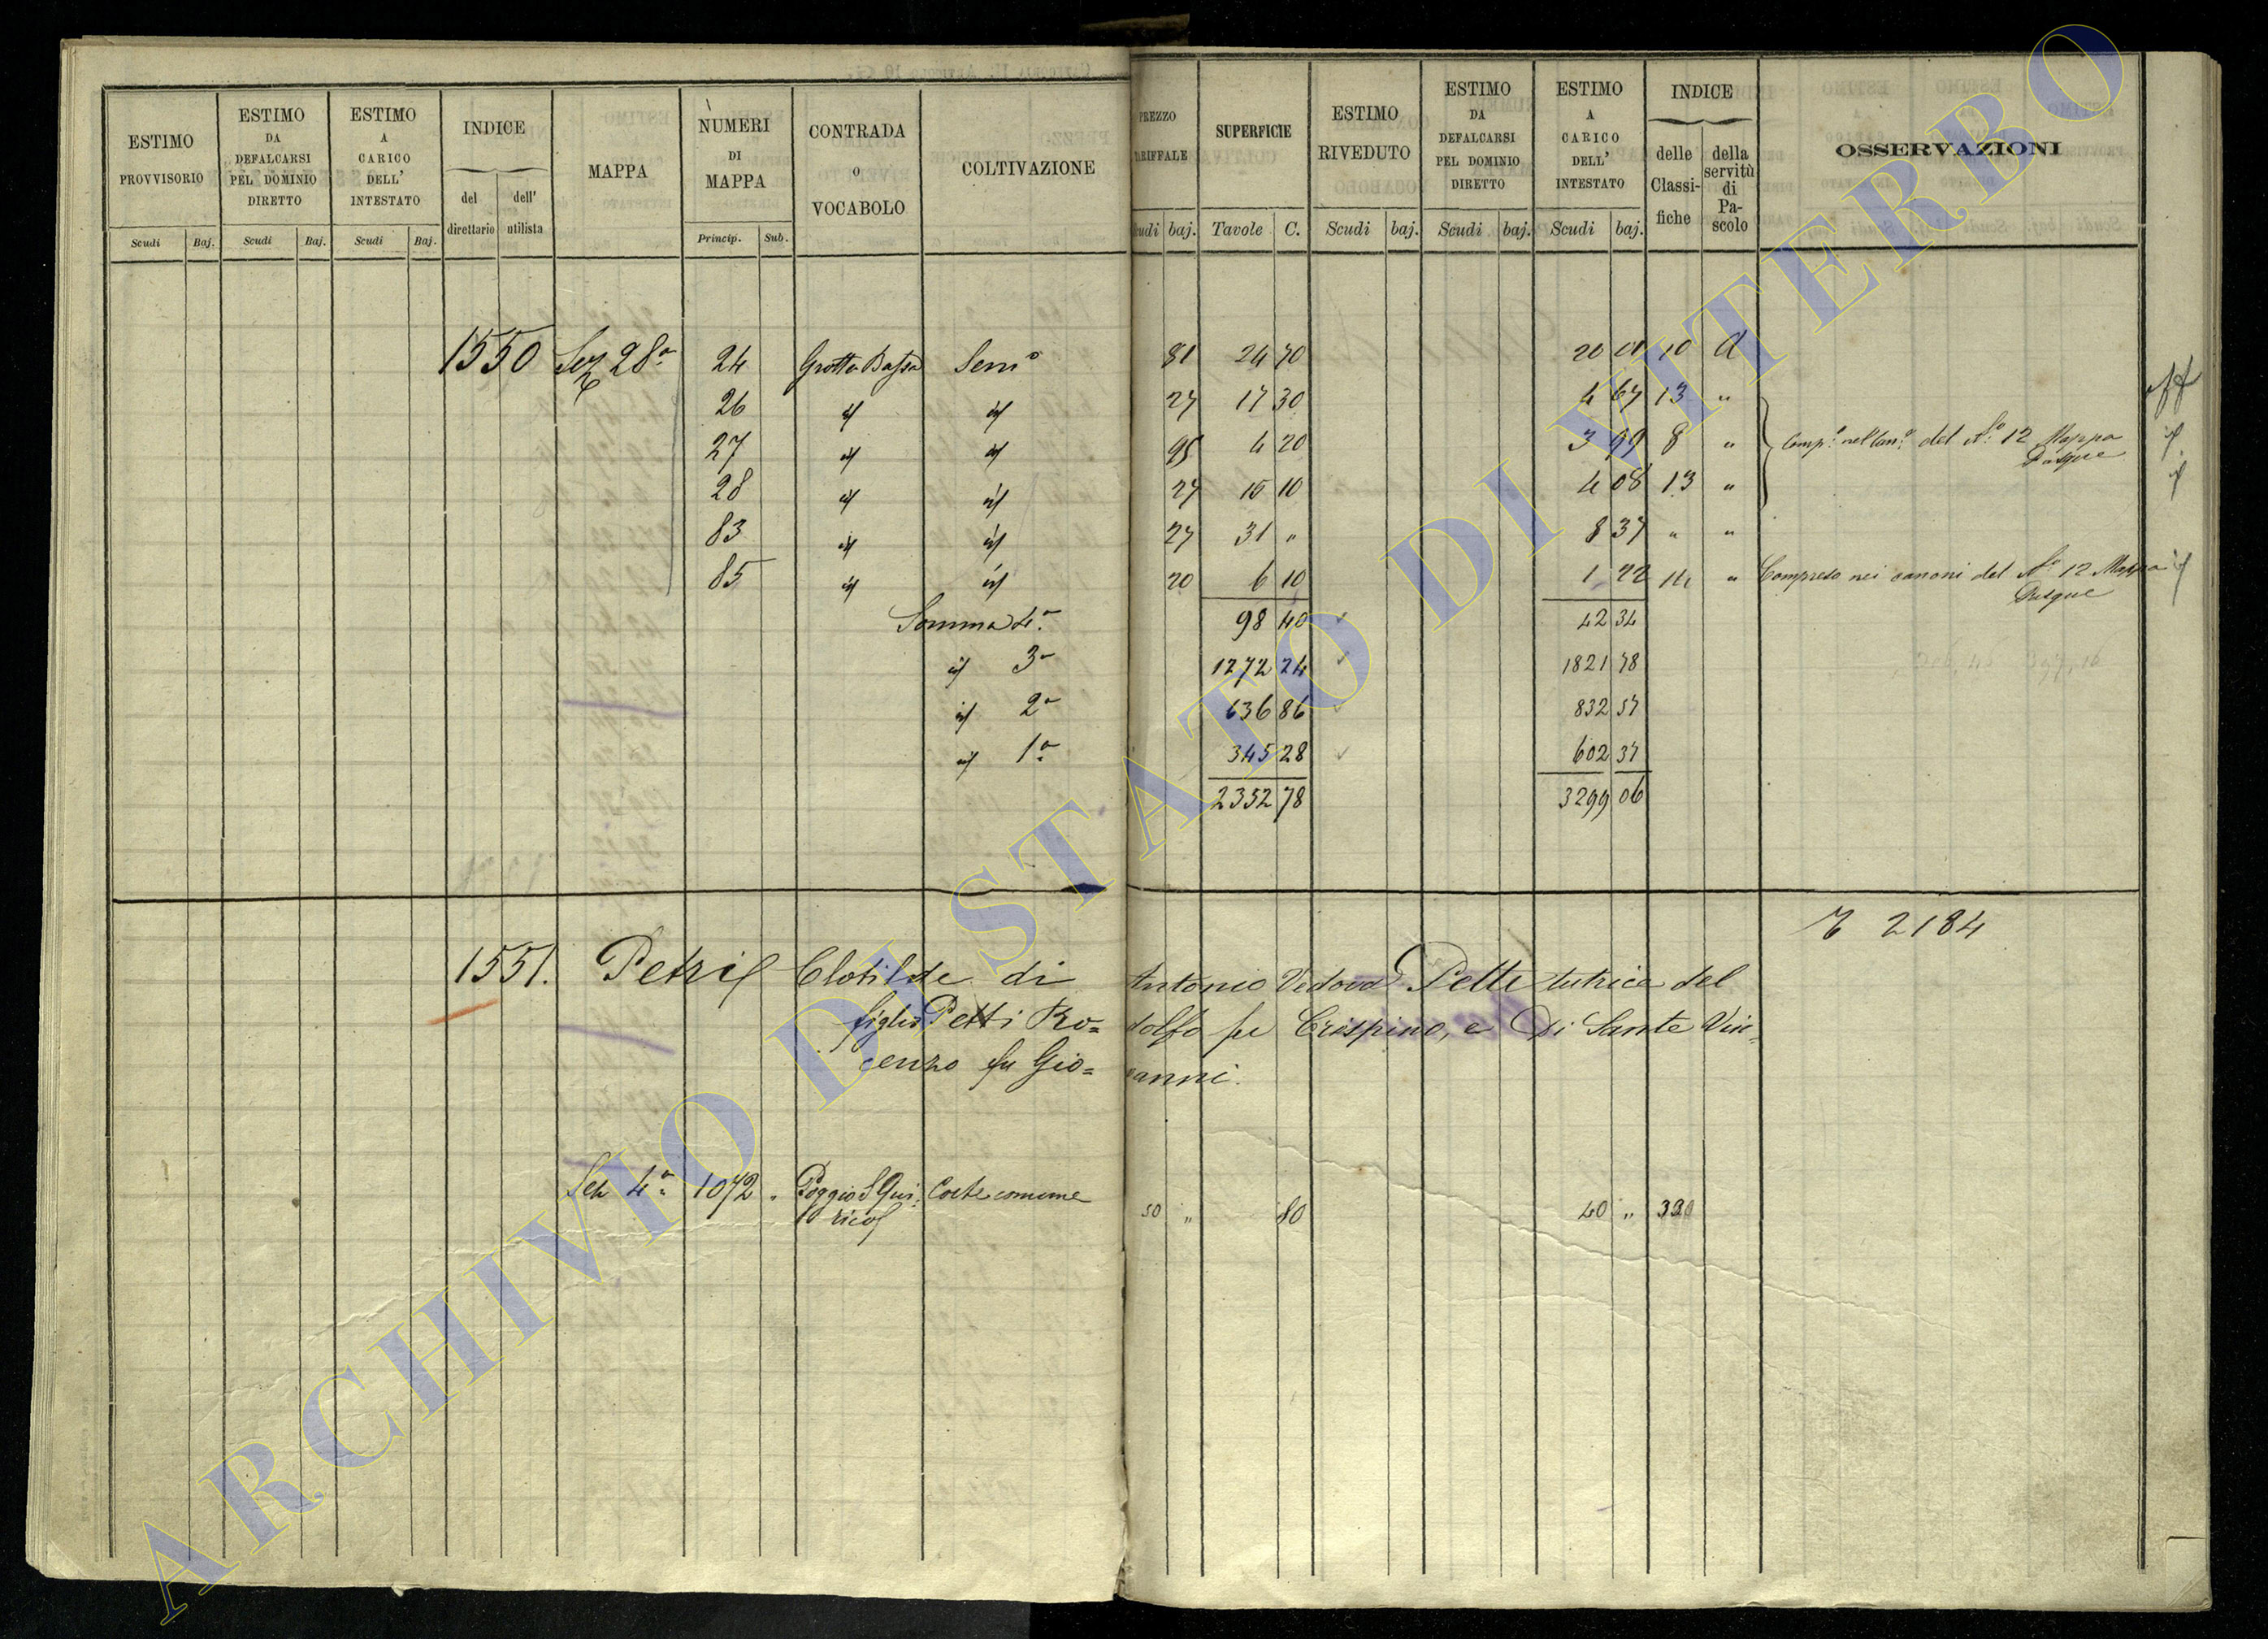 ESTIMO PROVVISORIO | ESTIMO DA DEFALCARSI PEL DOMINIO DIRETTO | ESTIMO A CARICO DELL' INTESTATO | INDICE del direttario dell' utilista | MAPPA | NUMERI DI MAPPA | CONTRADA O VOCABOLO | COLTIVAZIONE | PREZZO TARIFFALE | SUPERFICIE | ESTIMO RIVEDUTO | ESTIMO DA DEFALCARSI PEL DOMINIO DIRETTO | ESTIMO A CARICO DELL' INTESTATO | INDICE delle Classifiche della servitù di Pascolo | OSSERVAZIONI
Scudi Baj. Scudi Baj. Scudi Baj. Princip. Sub. Scudi baj. Tavole C. Scudi baj. Scudi baj. Scudi baj.
1550 Sez 28a 24 Grotta Bassa Semo 81 24 70 20 01 10 A
26 id id 27 17 30 4 67 13 "
27 id id 95 4 20 3 99 8 " Compo nel Cano del No 12 Mappa Pasque
28 id id 27 15 10 4 08 13 "
83 id id 27 31 " 8 37 " "
85 id id 20 6 10 1 22 14 " Compreso nei canoni del No 12 Mappa Pasque
Somma 4a 98 40 42 34
id 3a 1272 24 1821 78
id 2a 636 86 832 57
id 1a 345 28 602 37
2352 78 3299 06
2184
1551. Petri Clotilde di Antonio Vedova Petti tutrice del
figlio Petti Ro= dolfo fu Crispino, e Di Sante Vin=
cenzo fu Gio= vanni.
Sez 4a 1072 " Poggio S Qui= Corte comune 50 " 80 40 "
rico
ARCHIVIO DI STATO DI VITERBO